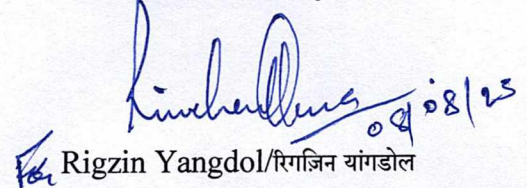 08/08/23
For Rigzin Yangdol/रिगज़िन यांगडोल